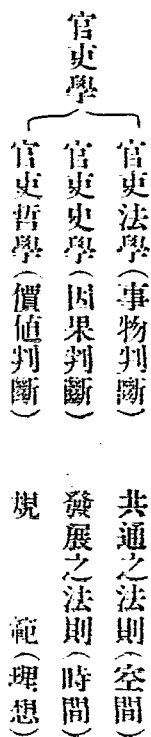 官吏學
官吏法學(事物判斷) 共通之法則(空間)
官吏史學(因果判斷) 發展之法則(時間)
官吏哲學(價值判斷) 規範(理想)